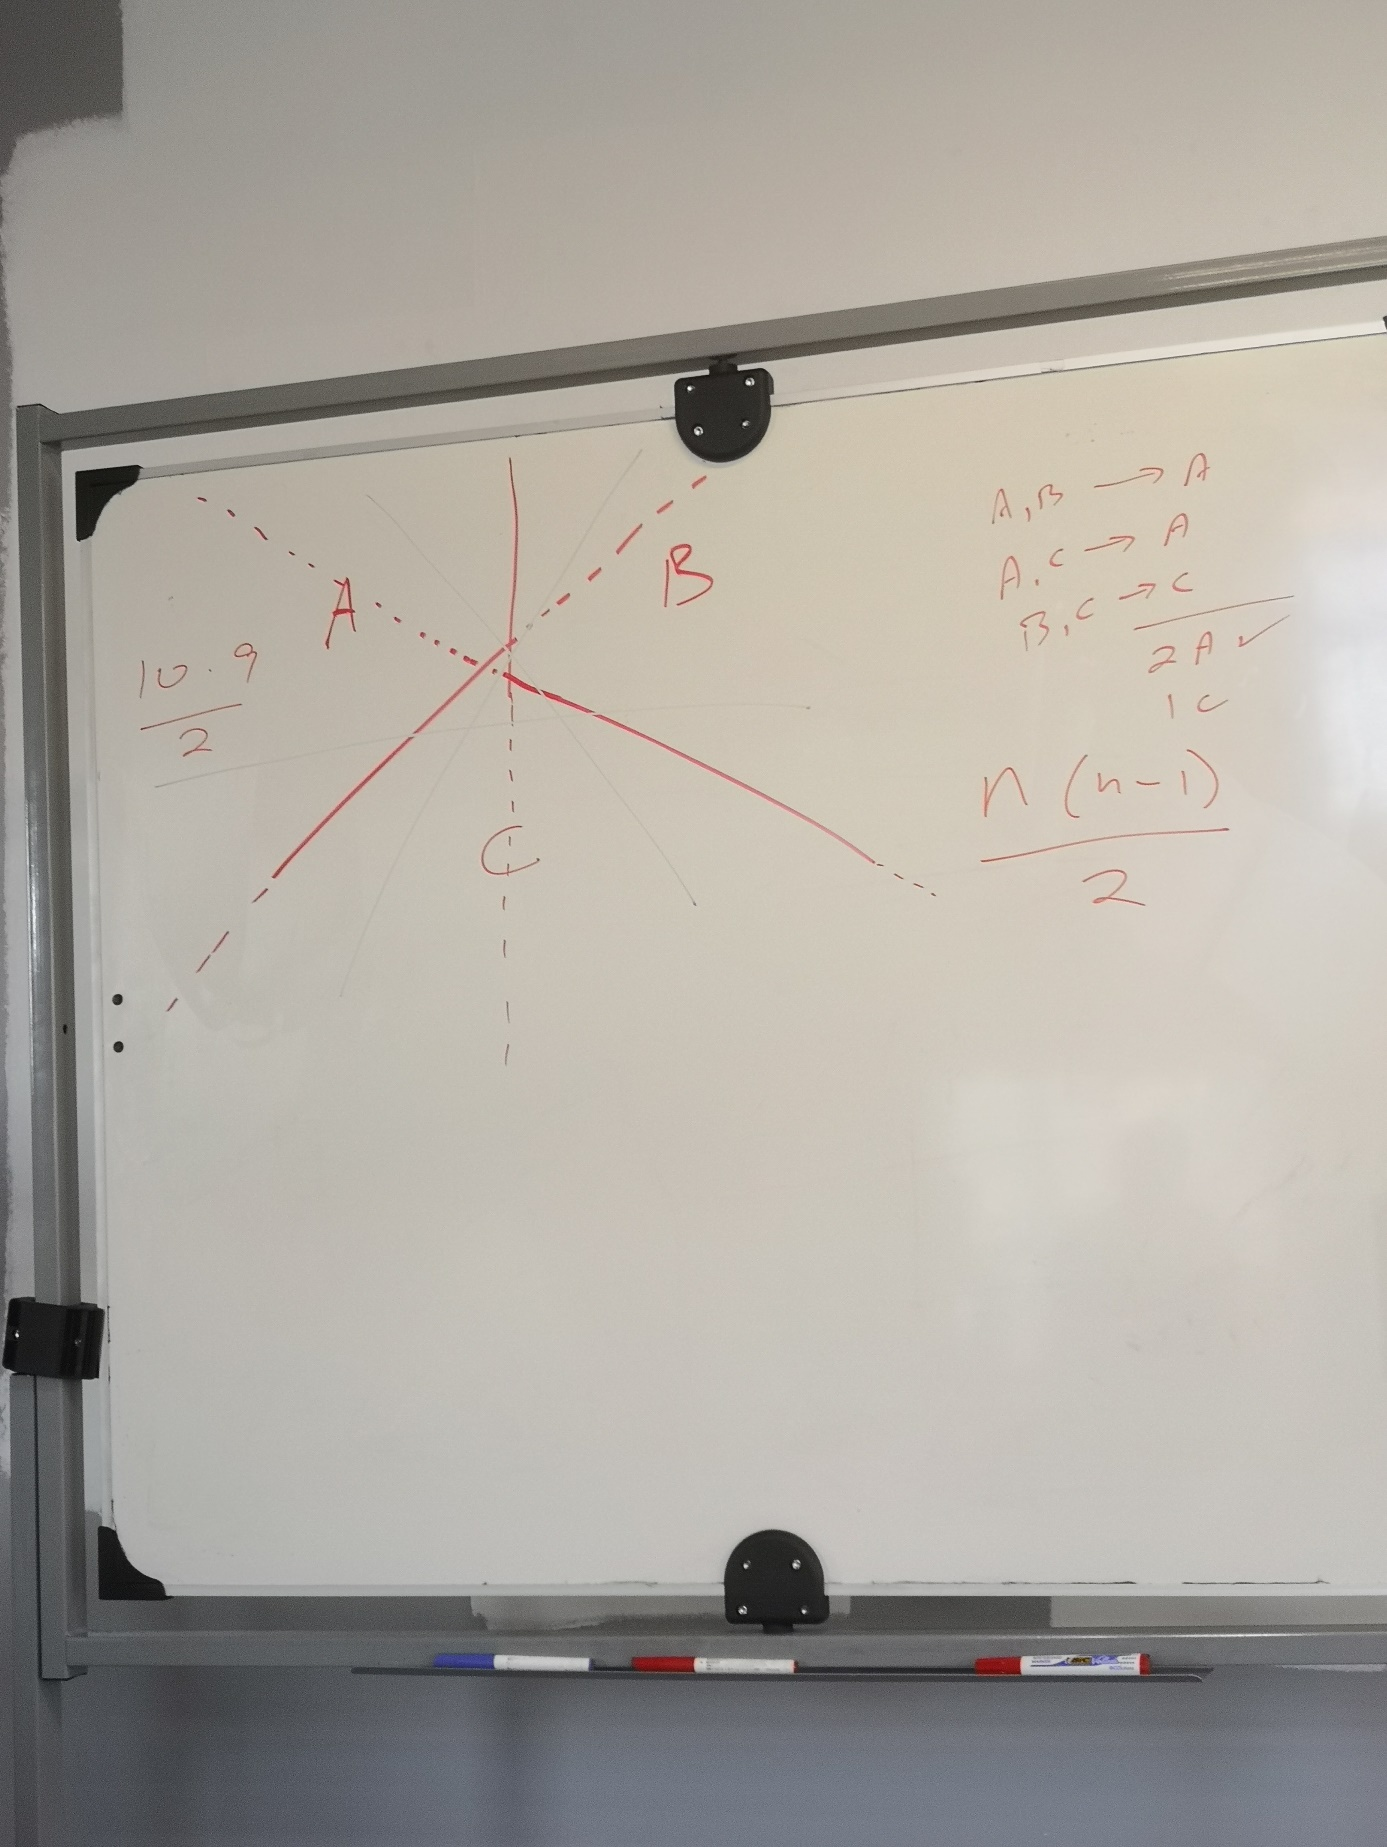 A
B
C
10 · 9
2
A, B → A
A, C → A
B, C → C
2 A ✓
1 C
n (n-1)
2
BIC